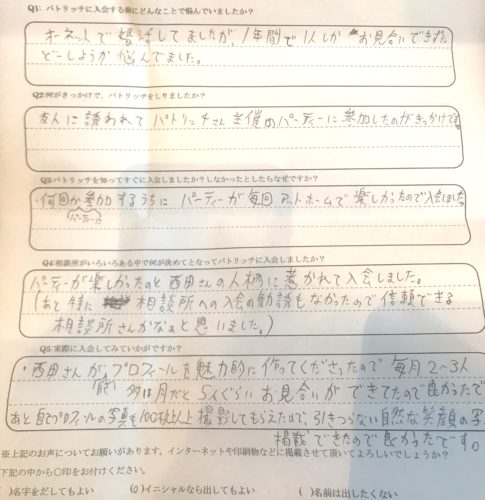 Q1: パトリッチに入会する前にどんなことで悩んでいましたか？
オーネットで婚活してましたが、1年間で1人しかお見合いできず
どーしようか悩んでました。
Q2:何がきっかけで、パトリッチをしりましたか？
友人に誘われてパトリッチさん主催のパーティーに参加したのがきっかけです。
Q3:パトリッチを知ってすぐに入会しましたか？しなかったとしたらなぜですか？
・何回か参加するうちにパーティーが毎回アットホームで楽しかったので入会しました
(パーティーに)
Q4:相談所がいろいろある中で何が決めてとなってパトリッチに入会しましたか？
パーティーが楽しかったのと西田さんの人柄に惹かれて入会しました。
(あと特に 相談所への入会の勧誘もなかったので信頼できる
相談所さんかなぁと思いました。)
Q5:実際に入会してみていかがですか？
・西田さんがプロフィールを魅力的に作ってくださったので毎月2~3人
多い月だと5人ぐらいお見合いができてたので良かったで
あと自でプロフィールの写真も100枚以上撮影してもらえたので、引きつらない自然な笑顔の写
掲載できたので良かったです。
※上記のお声についてお願いがあります。インターネットや印刷物などに掲載させて頂いてよろしいでしょうか？
下記の中から〇印をお付けください。
) 名字をだしてもよい (o) イニシャルなら出してもよい ( ) 名前は出したくない